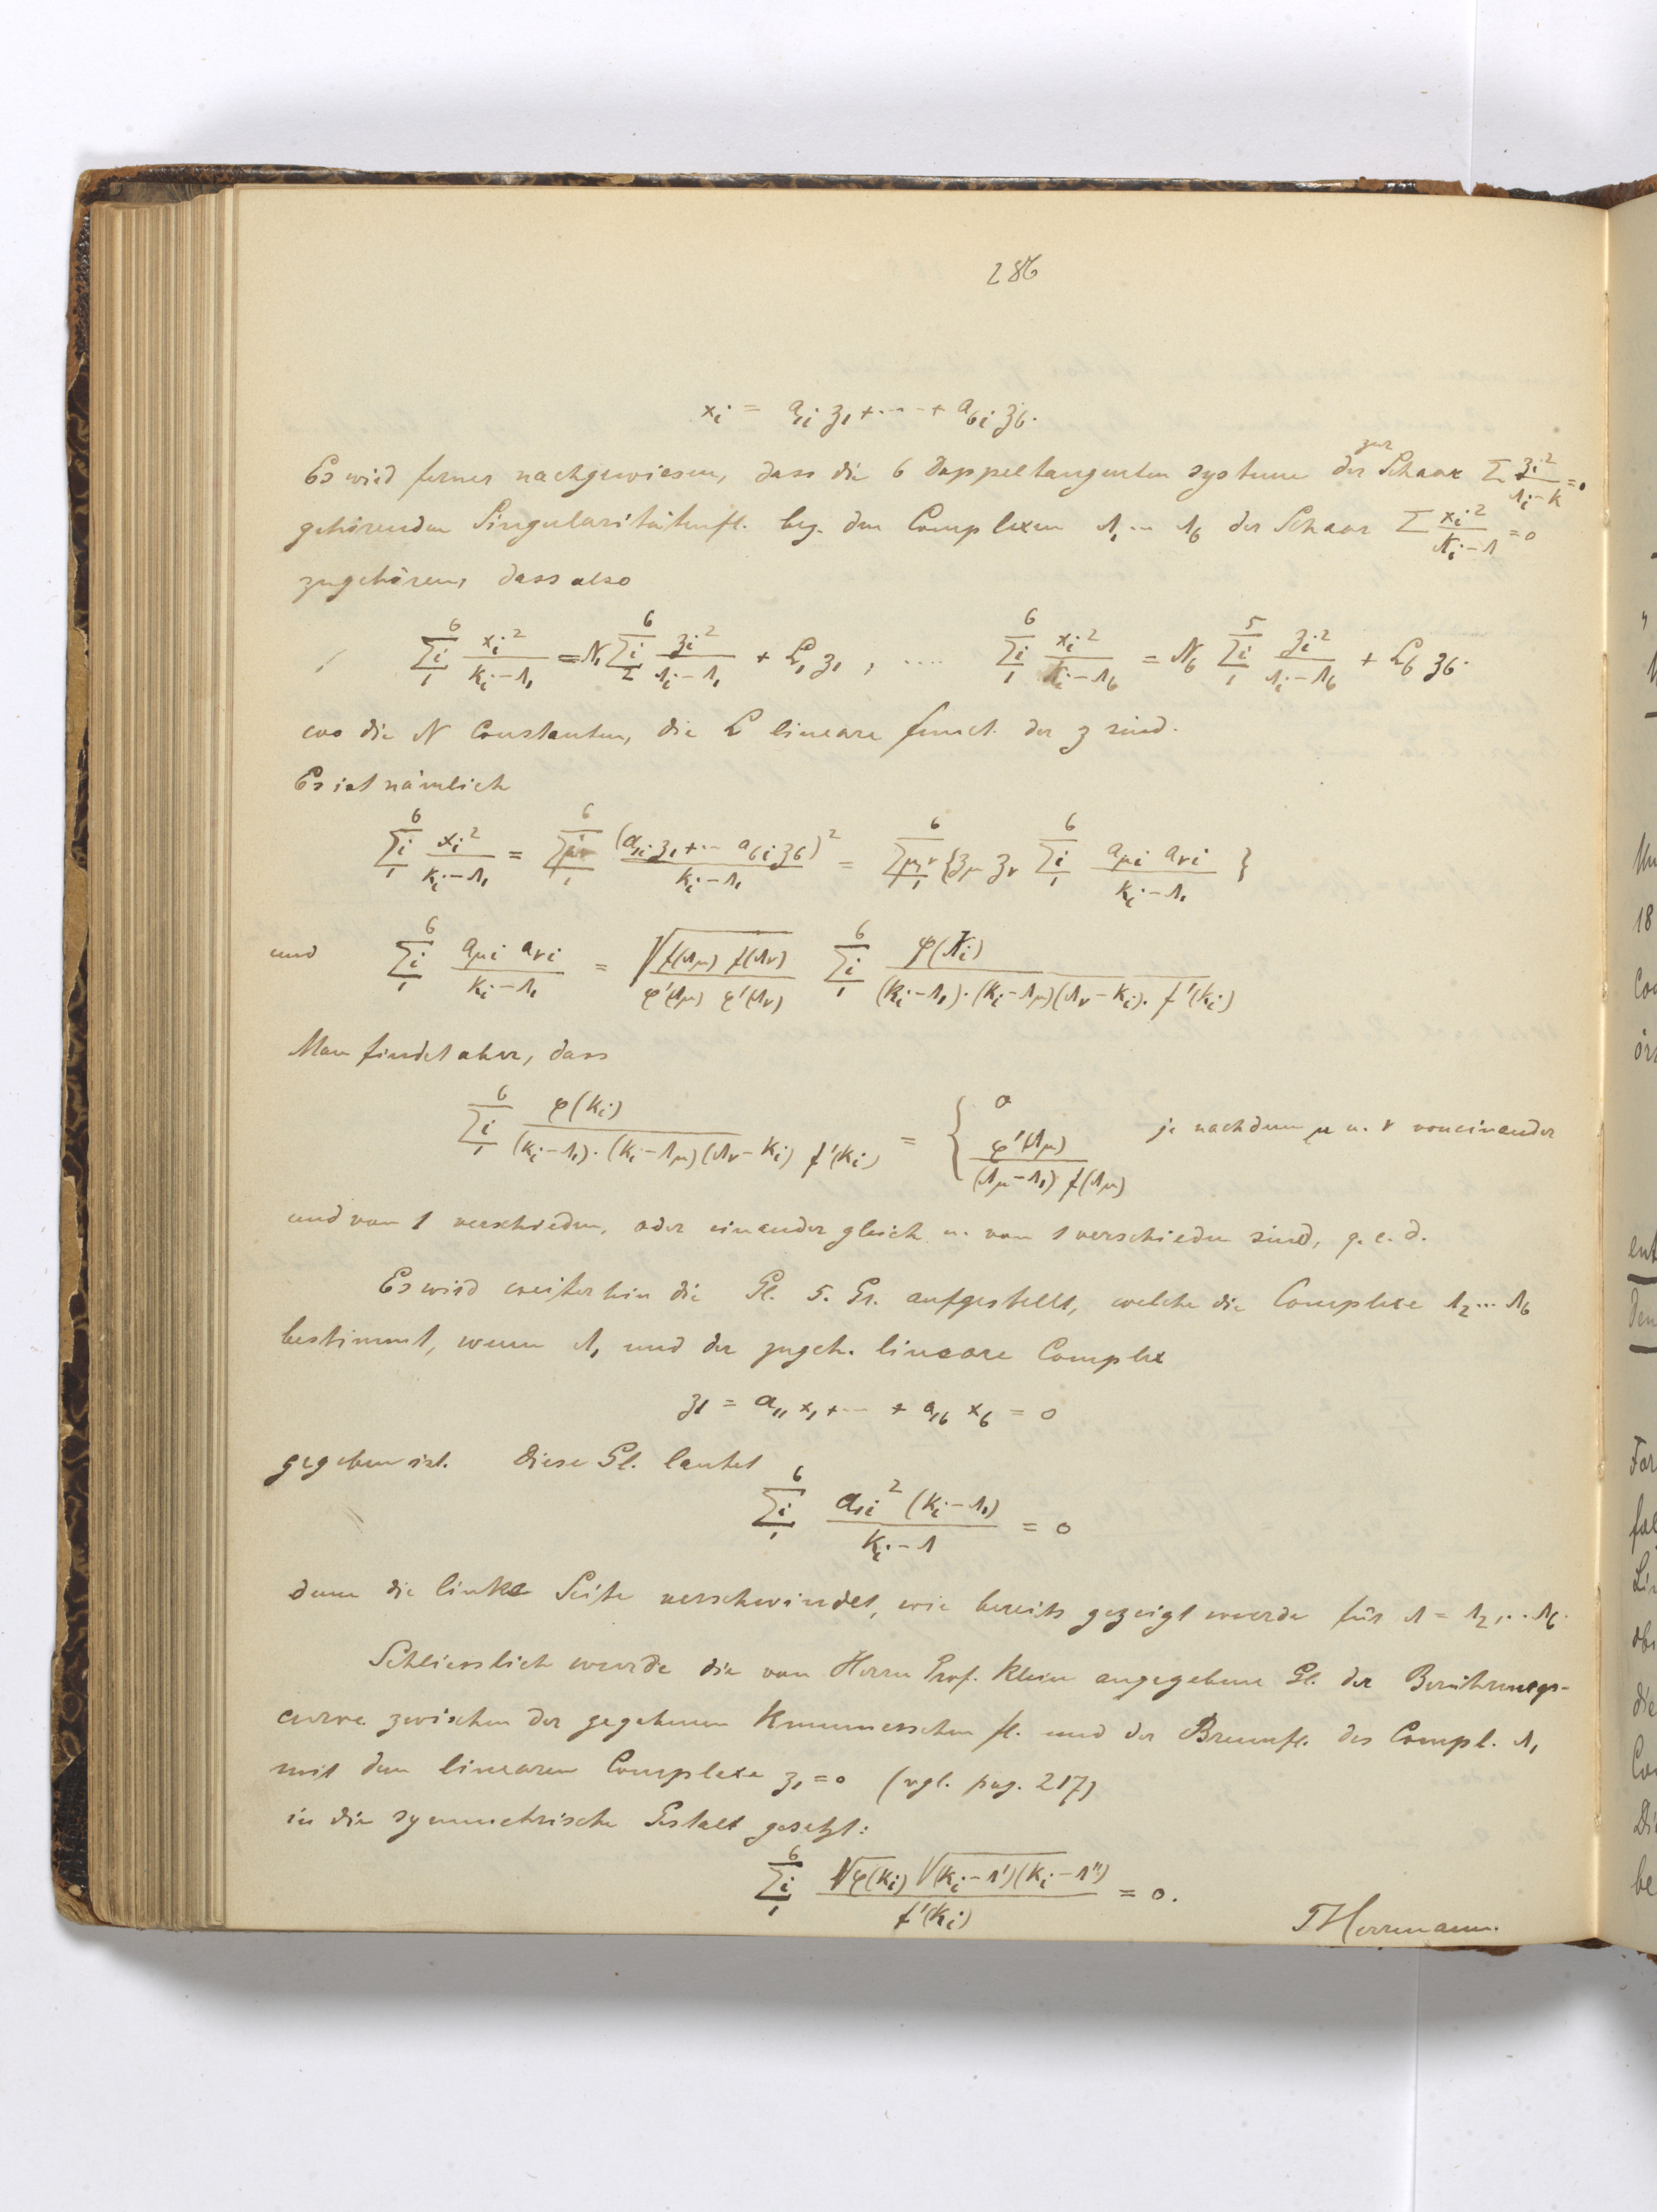 286
x_i = a_{1i} z_1 + ··· + a_{6i} z_6.
Es wird ferner nachgewiesen, dass die 6 Doppeltangentensysteme der zur Schaar Σ z_i²/(λ_i − k) = 0
gehörenden Singularitätenfl. bez. den Complexen λ_1 ... λ_6 der Schaar Σ x_i²/(k_i − λ) = 0
zugehören, dass also
Σ_i_1^6 x_i²/(k_i − λ_1) = N_1 Σ_i_2^6 z_i²/(λ_i − λ_1) + L_1 z_1 , .... Σ_i_1^6 x_i²/(k_i − λ_6) = N_6 Σ_i_1^5 z_i²/(λ_i − λ_6) + L_6 z_6.
wo die N Constanten, die L lineare funct. der z sind.
Es ist nämlich
Σ_i_1^6 x_i²/(k_i − λ_1) = Σ_1^6 (a_{1i} z_1 + ·· a_{6i} z_6)²/(k_i − λ_1) = Σ_{μν}_1^6 { z_μ z_ν Σ_i_1^6 a_{μi} a_{νi}/(k_i − λ_1) }
und Σ_i_1^6 a_{μi} a_{νi}/(k_i − λ_1) = √(f(λ_μ) f(λ_ν)/φ'(λ_μ) φ'(λ_ν)) Σ_i_1^6 φ(k_i)/((k_i − λ_1)·(k_i − λ_μ)(λ_ν − k_i)· f'(k_i))
Man findet aber, dass
Σ_i_1^6 φ(k_i)/((k_i − λ_1)·(k_i − λ_μ)(λ_ν − k_i) f'(k_i)) = { 0 ; φ'(λ_μ)/((λ_μ − λ_1) f(λ_μ)) je nachdem μ u. ν voneinander
und von 1 verschieden, oder einander gleich u. von 1 verschieden sind, q. e. d.
Es wird weiterhin die Gl. 5. Gr. aufgestellt, welche die Complexe λ_2 ... λ_6
bestimmt, wenn λ_1 und der zugeh. lineare Complex
z_1 = a_{11} x_1 + ··· + a_{16} x_6 = 0
gegeben ist. Diese Gl. lautet
Σ_i_1^6 a_{1i}² (k_i − λ_1)/(k_i − λ) = 0
denn die linke Seite verschwindet, wie bereits gezeigt wurde für λ = λ_2, .. λ_6.
Schliesslich wurde die von Herrn Prof. Klein angegebene Gl. der Berührungs-
curve zwischen der gegebenen Kummerschen fl. und der Brennfl. des Compl. λ_1
mit dem linearen Complexe z_1 = 0 (vgl. pag. 217)
in die symmetrische Gestalt gesetzt:
Σ_i_1^6 √φ(k_i) √(k_i − λ')(k_i − λ'')/f'(k_i) = 0.
THerrmann.